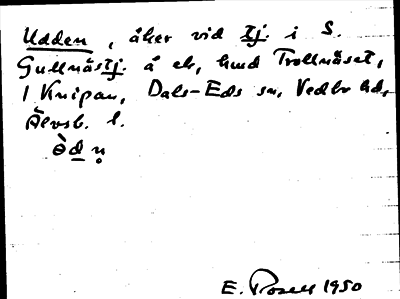 Udden, åker vid tj. i S.
Gullnästj. å ek, hmd Trollnäset,
1 Knipan, Dals-Eds sn, Vedbo hd,
Älvsb. l.
òdṇ
E. Rosell 1950